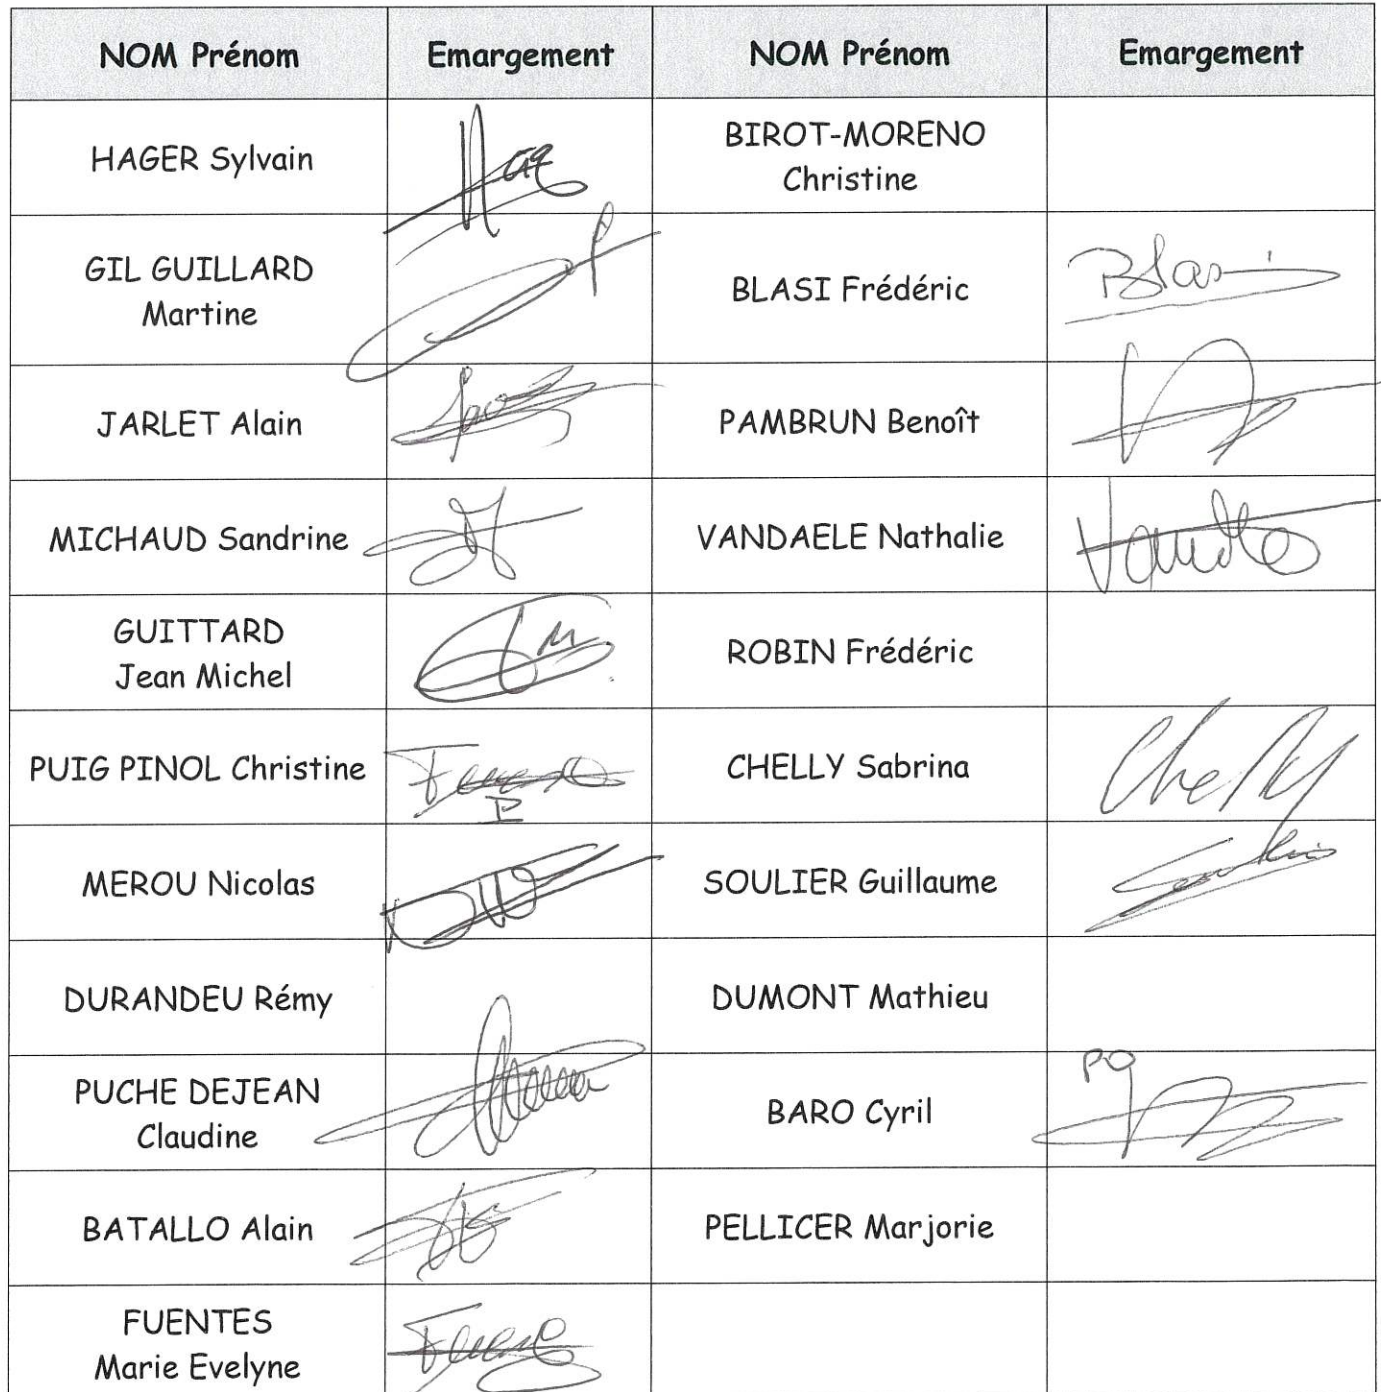 NOM Prénom Emargement NOM Prénom Emargement
HAGER Sylvain Hag BIROT-MORENO
Christine
GIL GUILLARD
Martine BLASI Frédéric Blasi
JARLET Alain PAMBRUN Benoît
MICHAUD Sandrine VANDAELE Nathalie
GUITTARD
Jean Michel ROBIN Frédéric
PUIG PINOL Christine CHELLY Sabrina Chelly
MEROU Nicolas SOULIER Guillaume
DURANDEU Rémy DUMONT Mathieu
PUCHE DEJEAN
Claudine BARO Cyril PO
BATALLO Alain PELLICER Marjorie
FUENTES
Marie Evelyne